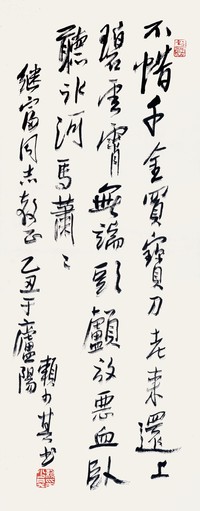 不惜千金買寶刀老来還上
碧雲霄無端頭顱放恶血臥
聽冰河馬蕭〻
继富同志教正乙丑于廬陽
賴少其书